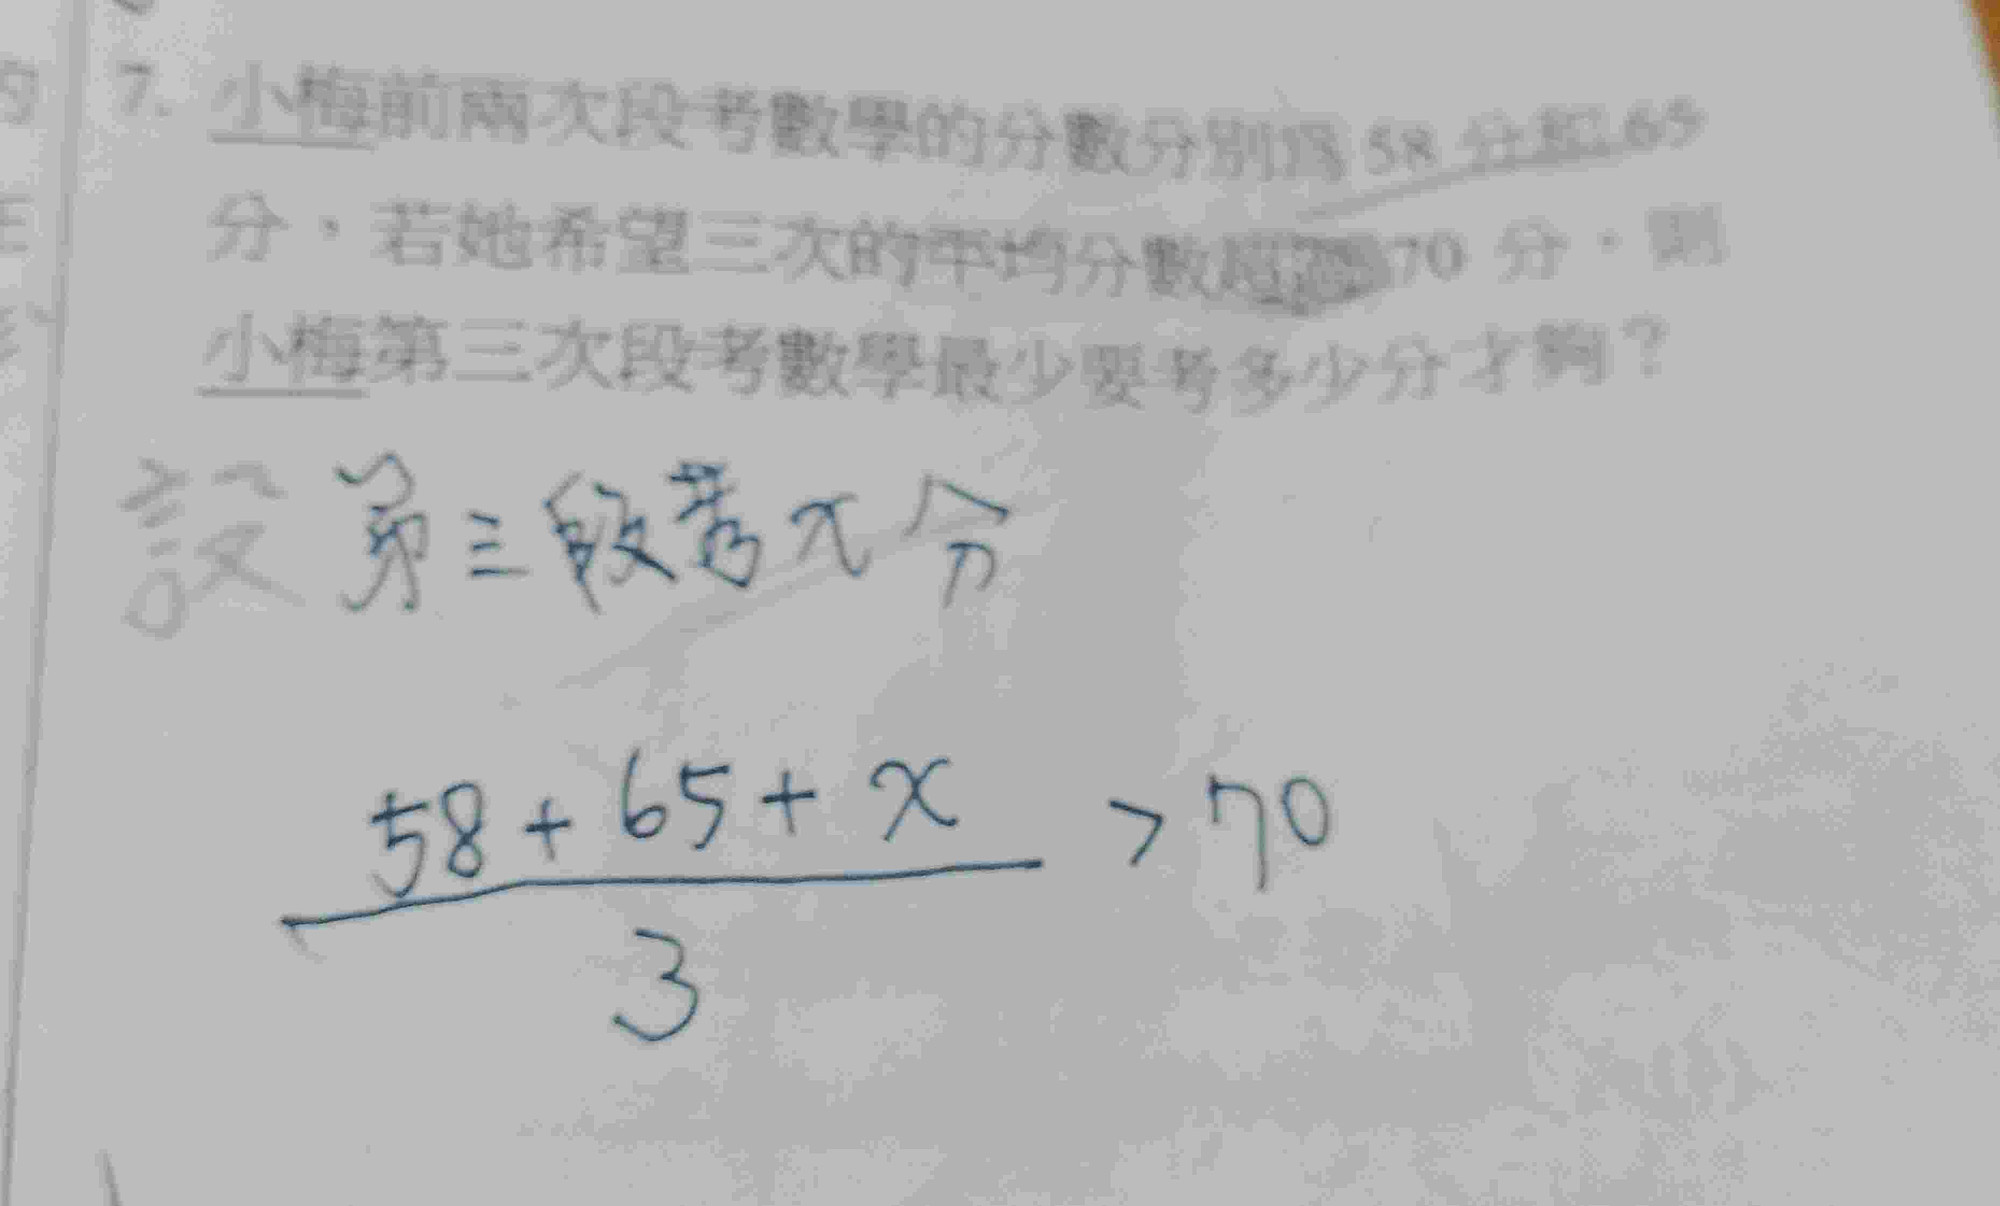 7. 小梅前兩次段考數學的分數分別為 58 分和 65
分，若她希望三次的平均分數超過 70 分，則
小梅第三次段考數學最少要考多少分才夠？
設 第三段考 x 分
58 + 65 + x > 70
3